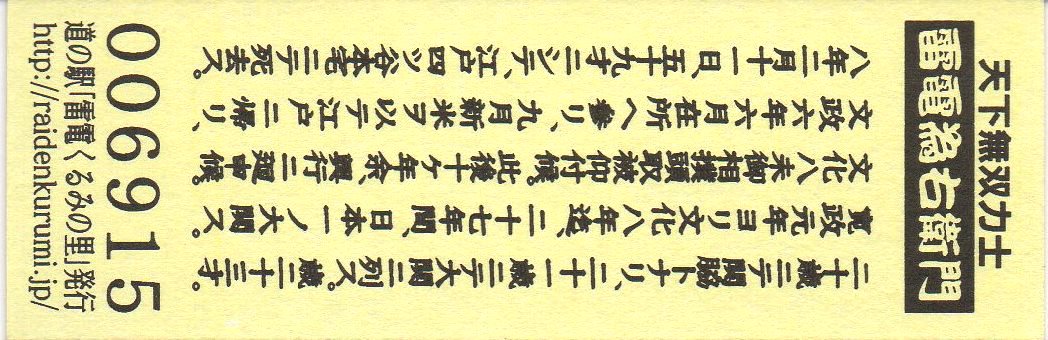 天下無双力士
雷電為右衛門
二十歳ニテ関脇トナリ、二十一歳ニテ大関ニ列ス。歳二十三才。
寛政元年ヨリ文化八年迄、二十七年間、日本一ノ大関ス。
文化八未御相撲頭取被仰付候。此後十ヶ年余、興行ニ廻申候。
文政六年六月在所へ参リ、九月新米ヲ以テ江戸ニ帰リ、
八年二月十一日、五十九才ニシテ、江戸四ツ谷本宅ニテ死去ス。
006915
道の駅「雷電くるみの里」発行
http://raidenkurumi.jp/